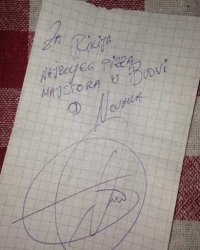 ZA Rikija
NAJBOLJEG PIZZA
MAJSTORA U BUDVI